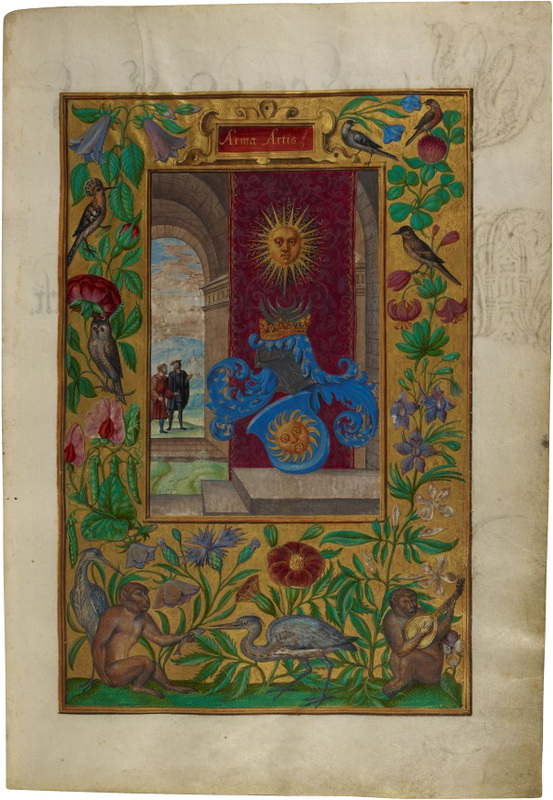 Arma Artis